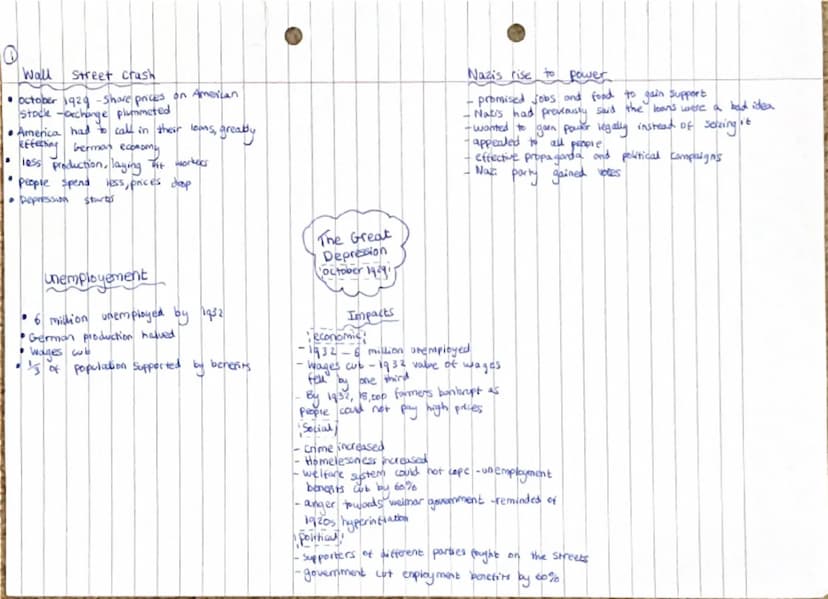 1
Wall Street crash
• October 1929 - Share prices on American
stock -exchange plummeted
• America had to call in their loans, greatly
effecting German economy
• less production, laying off workers
• People spend less, prices drop
• Depression starts
Nazis rise to power
- promised jobs and food to gain support
- Nazis had previously said the loans were a bad idea
- wanted to gain power legally instead of seizing it
- appealed to all people
- effective propaganda and political campaigns
- Nazi party gained votes
The Great
Depression
October 1929
unemployement
• 6 million unemployed by 1932
• German production halved
• Wages cut
• 1/3 of population supported by benefits
Impacts
economic
- 1932 - 6 million unemployed
- Wages cut - 1932 value of wages
fell by one third
- By 1932, 18,000 farmers bankrupt as
people could not pay high prices
Social
- Crime increased
- Homelessness increased
- Welfare system could not cope - unemployment
benefits cut by 60%
- anger towards weimar government - reminded of
1920s hyperinflation
political
- supporters of different parties fought on the streets
- government cut employment benefits by 60%